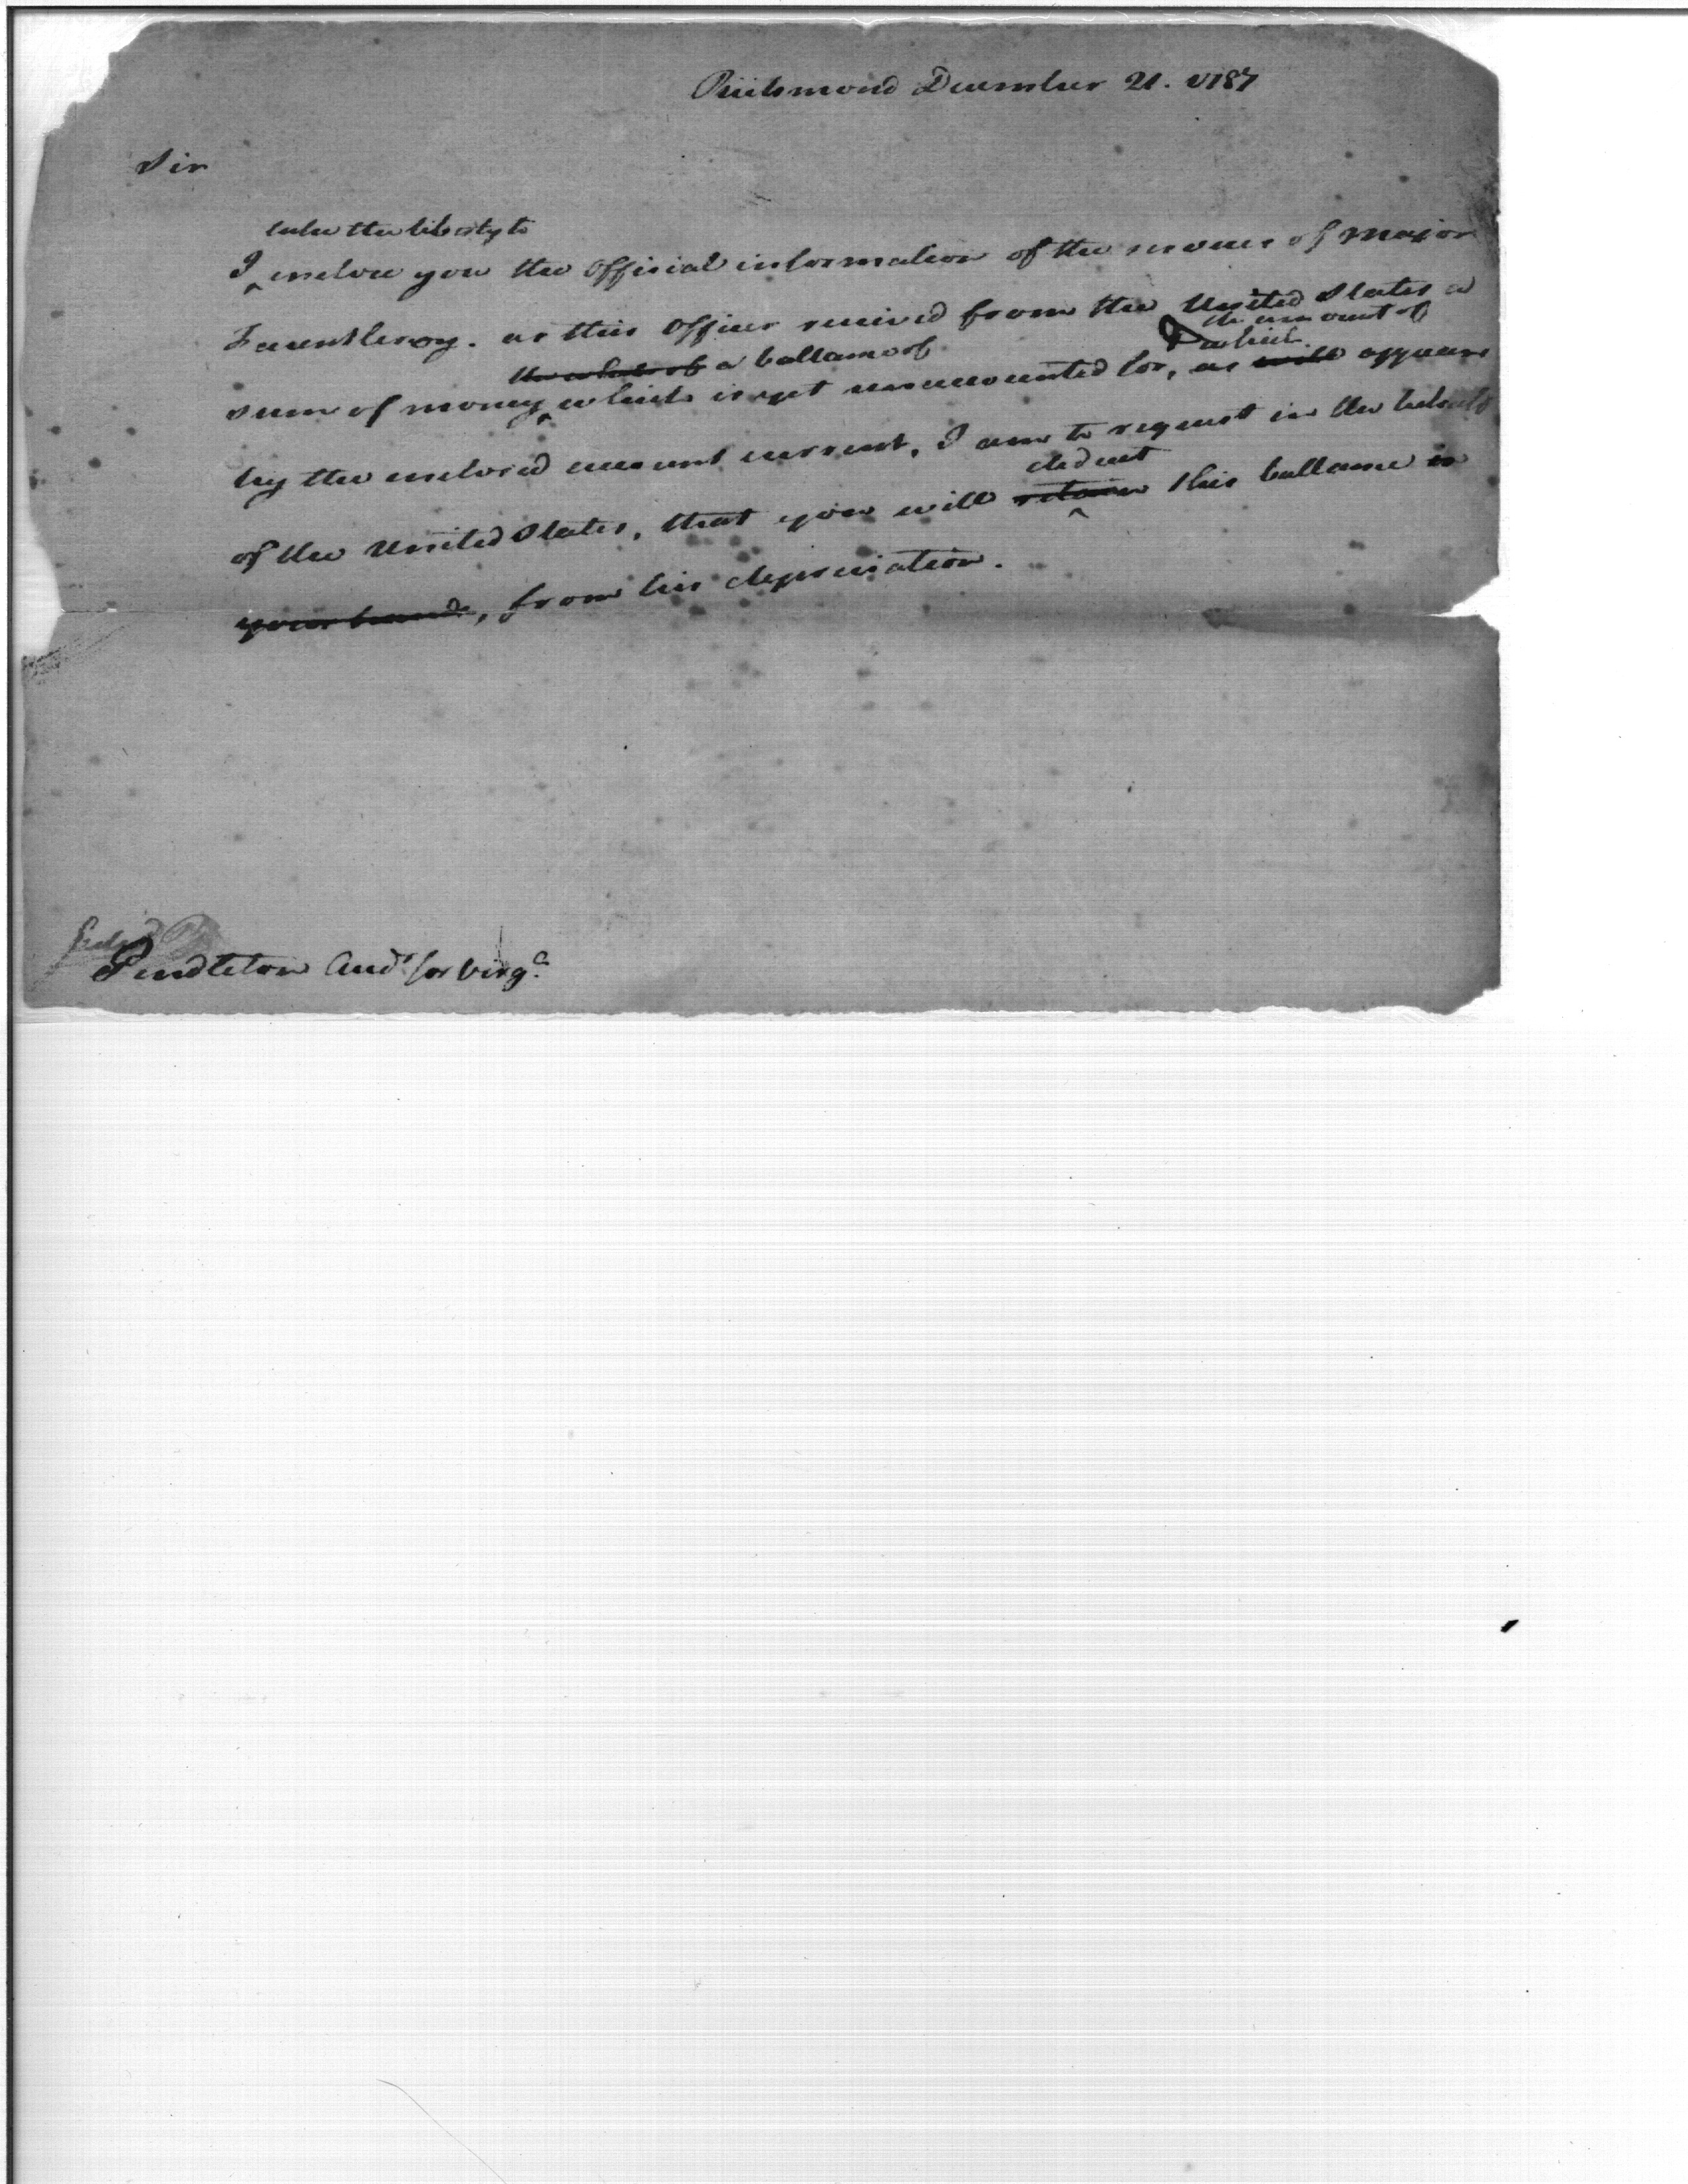 Richmond December 21. 1787
Sir
take the liberty to
I enclose you the official information of the services of Major
Fauntleroy. as this officer received from the United States a
the amount of
which
the whole of a ballance of
sum of money which is yet unaccounted for, as will appears
by the enclosed account current, I am to request in the behalf
deduct
of the United States, that you will retain this ballance in
your hands, from his depreciation.
Pendleton Audr for Virga